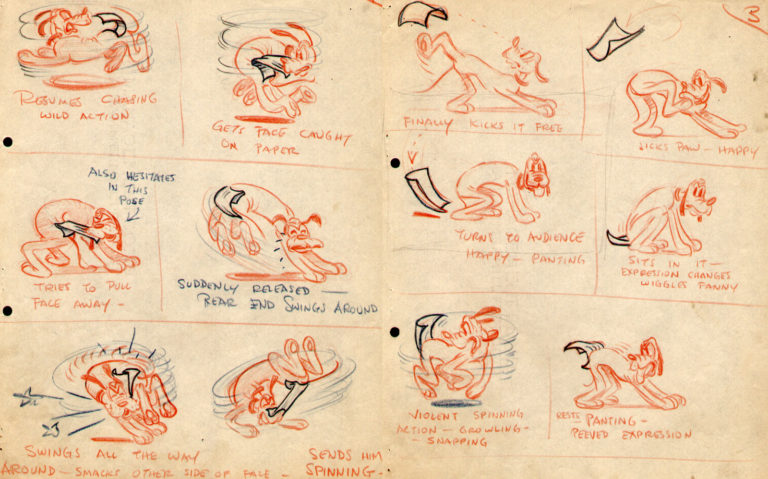 RESUMES CHASING
WILD ACTION
GETS FACE CAUGHT
ON PAPER
ALSO HESITATES
IN THIS
POSE
TRIES TO PULL
FACE AWAY -
SUDDENLY RELEASED -
REAR END SWINGS AROUND
SWINGS ALL THE WAY
AROUND - SMACKS OTHER SIDE OF FACE -
SENDS HIM
SPINNING -
3
FINALLY KICKS IT FREE
LICKS PAW - HAPPY
TURNS TO AUDIENCE
HAPPY - PANTING
SITS IN IT -
EXPRESSION CHANGES
WIGGLES FANNY
VIOLENT SPINNING
ACTION - GROWLING -
- SNAPPING
RESTS PANTING -
PEEVED EXPRESSION